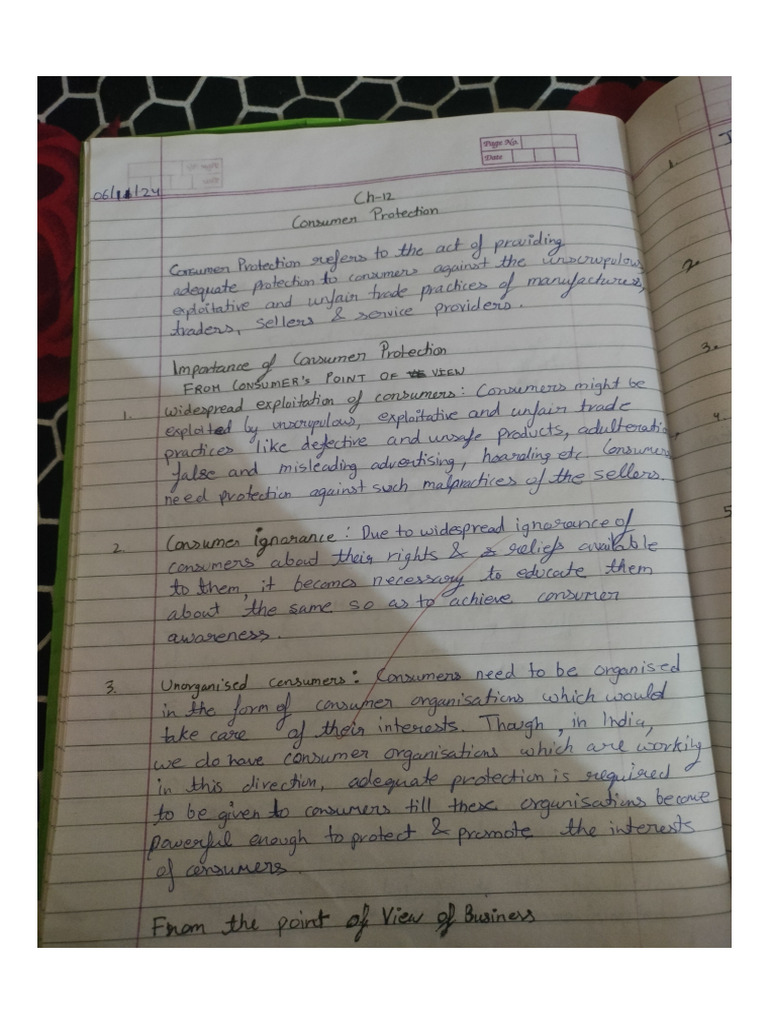 Page No.
Date
06/11/24
Ch-12
Consumer Protection
Consumer Protection refers to the act of providing
adequate protection to consumers against the unscrupulous,
exploitative and unfair trade practices of manufactures,
traders, sellers & service providers.
Importance of Consumer Protection
FROM CONSUMER'S POINT OF VIEW
1. Widespread exploitation of consumers: Consumers might be
exploited by unscrupulous, exploitative and unfair trade
practices like defective and unsafe products, adulteration,
false and misleading advertising, hoarding etc. Consumers
need protection against such malpractices of the sellers.
2. Consumer ignorance: Due to widespread ignorance of
consumers about their rights & reliefs available
to them, it becomes necessary to educate them
about the same so as to achieve consumer
awareness.
3. Unorganised consumers: Consumers need to be organised
in the form of consumer organisations which would
take care of their interests. Though, in India,
we do have consumer organisations which are working
in this direction, adequate protection is required
to be given to consumers till these organisations become
powerful enough to protect & promote the interests
of consumers.
From the point of View of Business
1.
2.
3.
4.
5